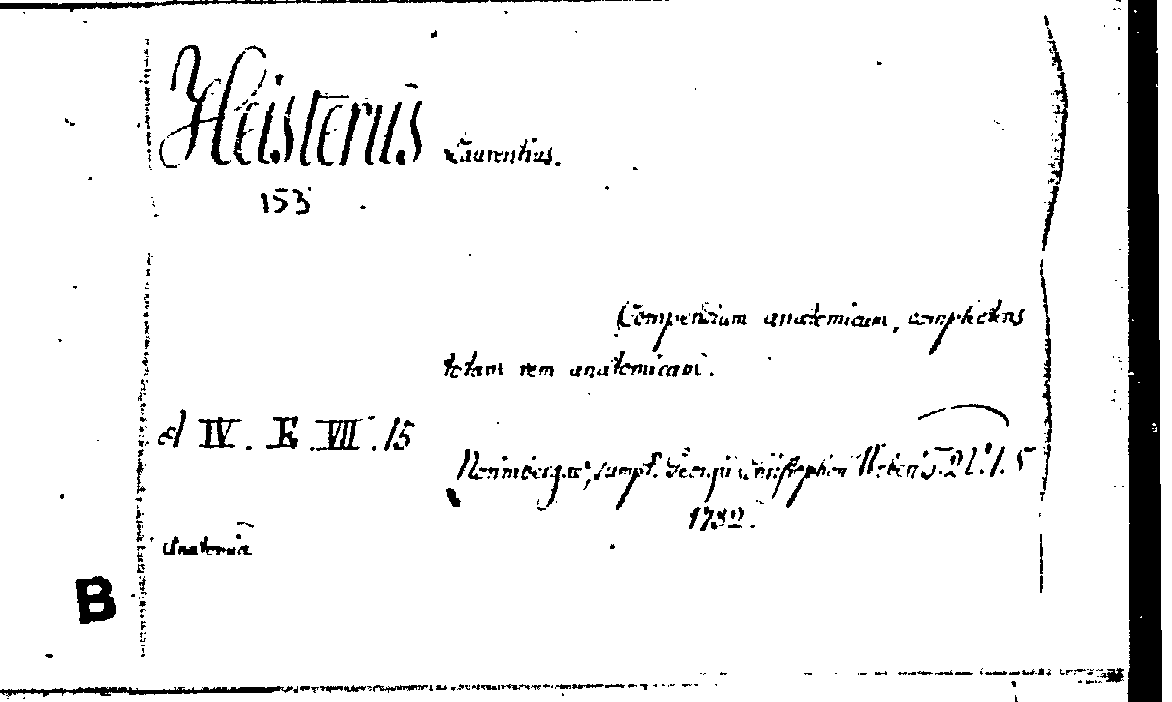 Heisterus Laurentius.
153
Compendium anatomicum, complectens
totam rem anatomicam.
IV. E. VII. 15
Norimbergae, sumpt. Georgii Christophori Weberi
1732.
Anatomia
B